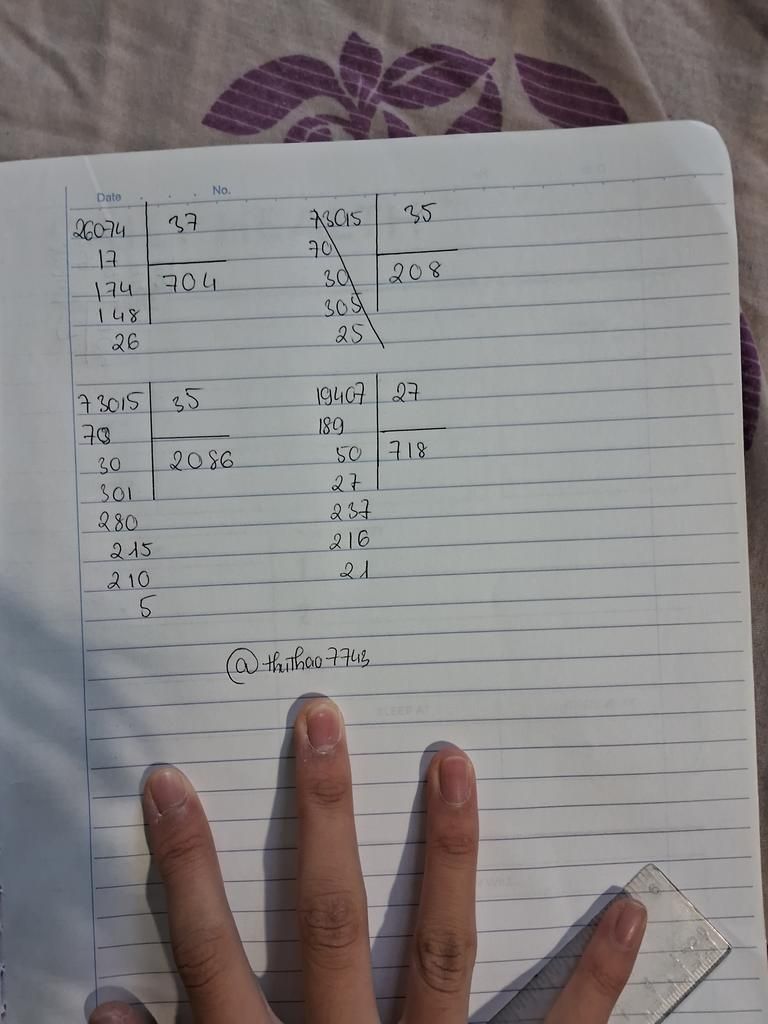 Date No.
26074 37
17
174 704
148
26
73015 35
70
30 208
305
25
73015 35
70
30 2086
301
280
215
210
5
19407 27
189
50 718
27
237
216
21
@thuthao7743
6